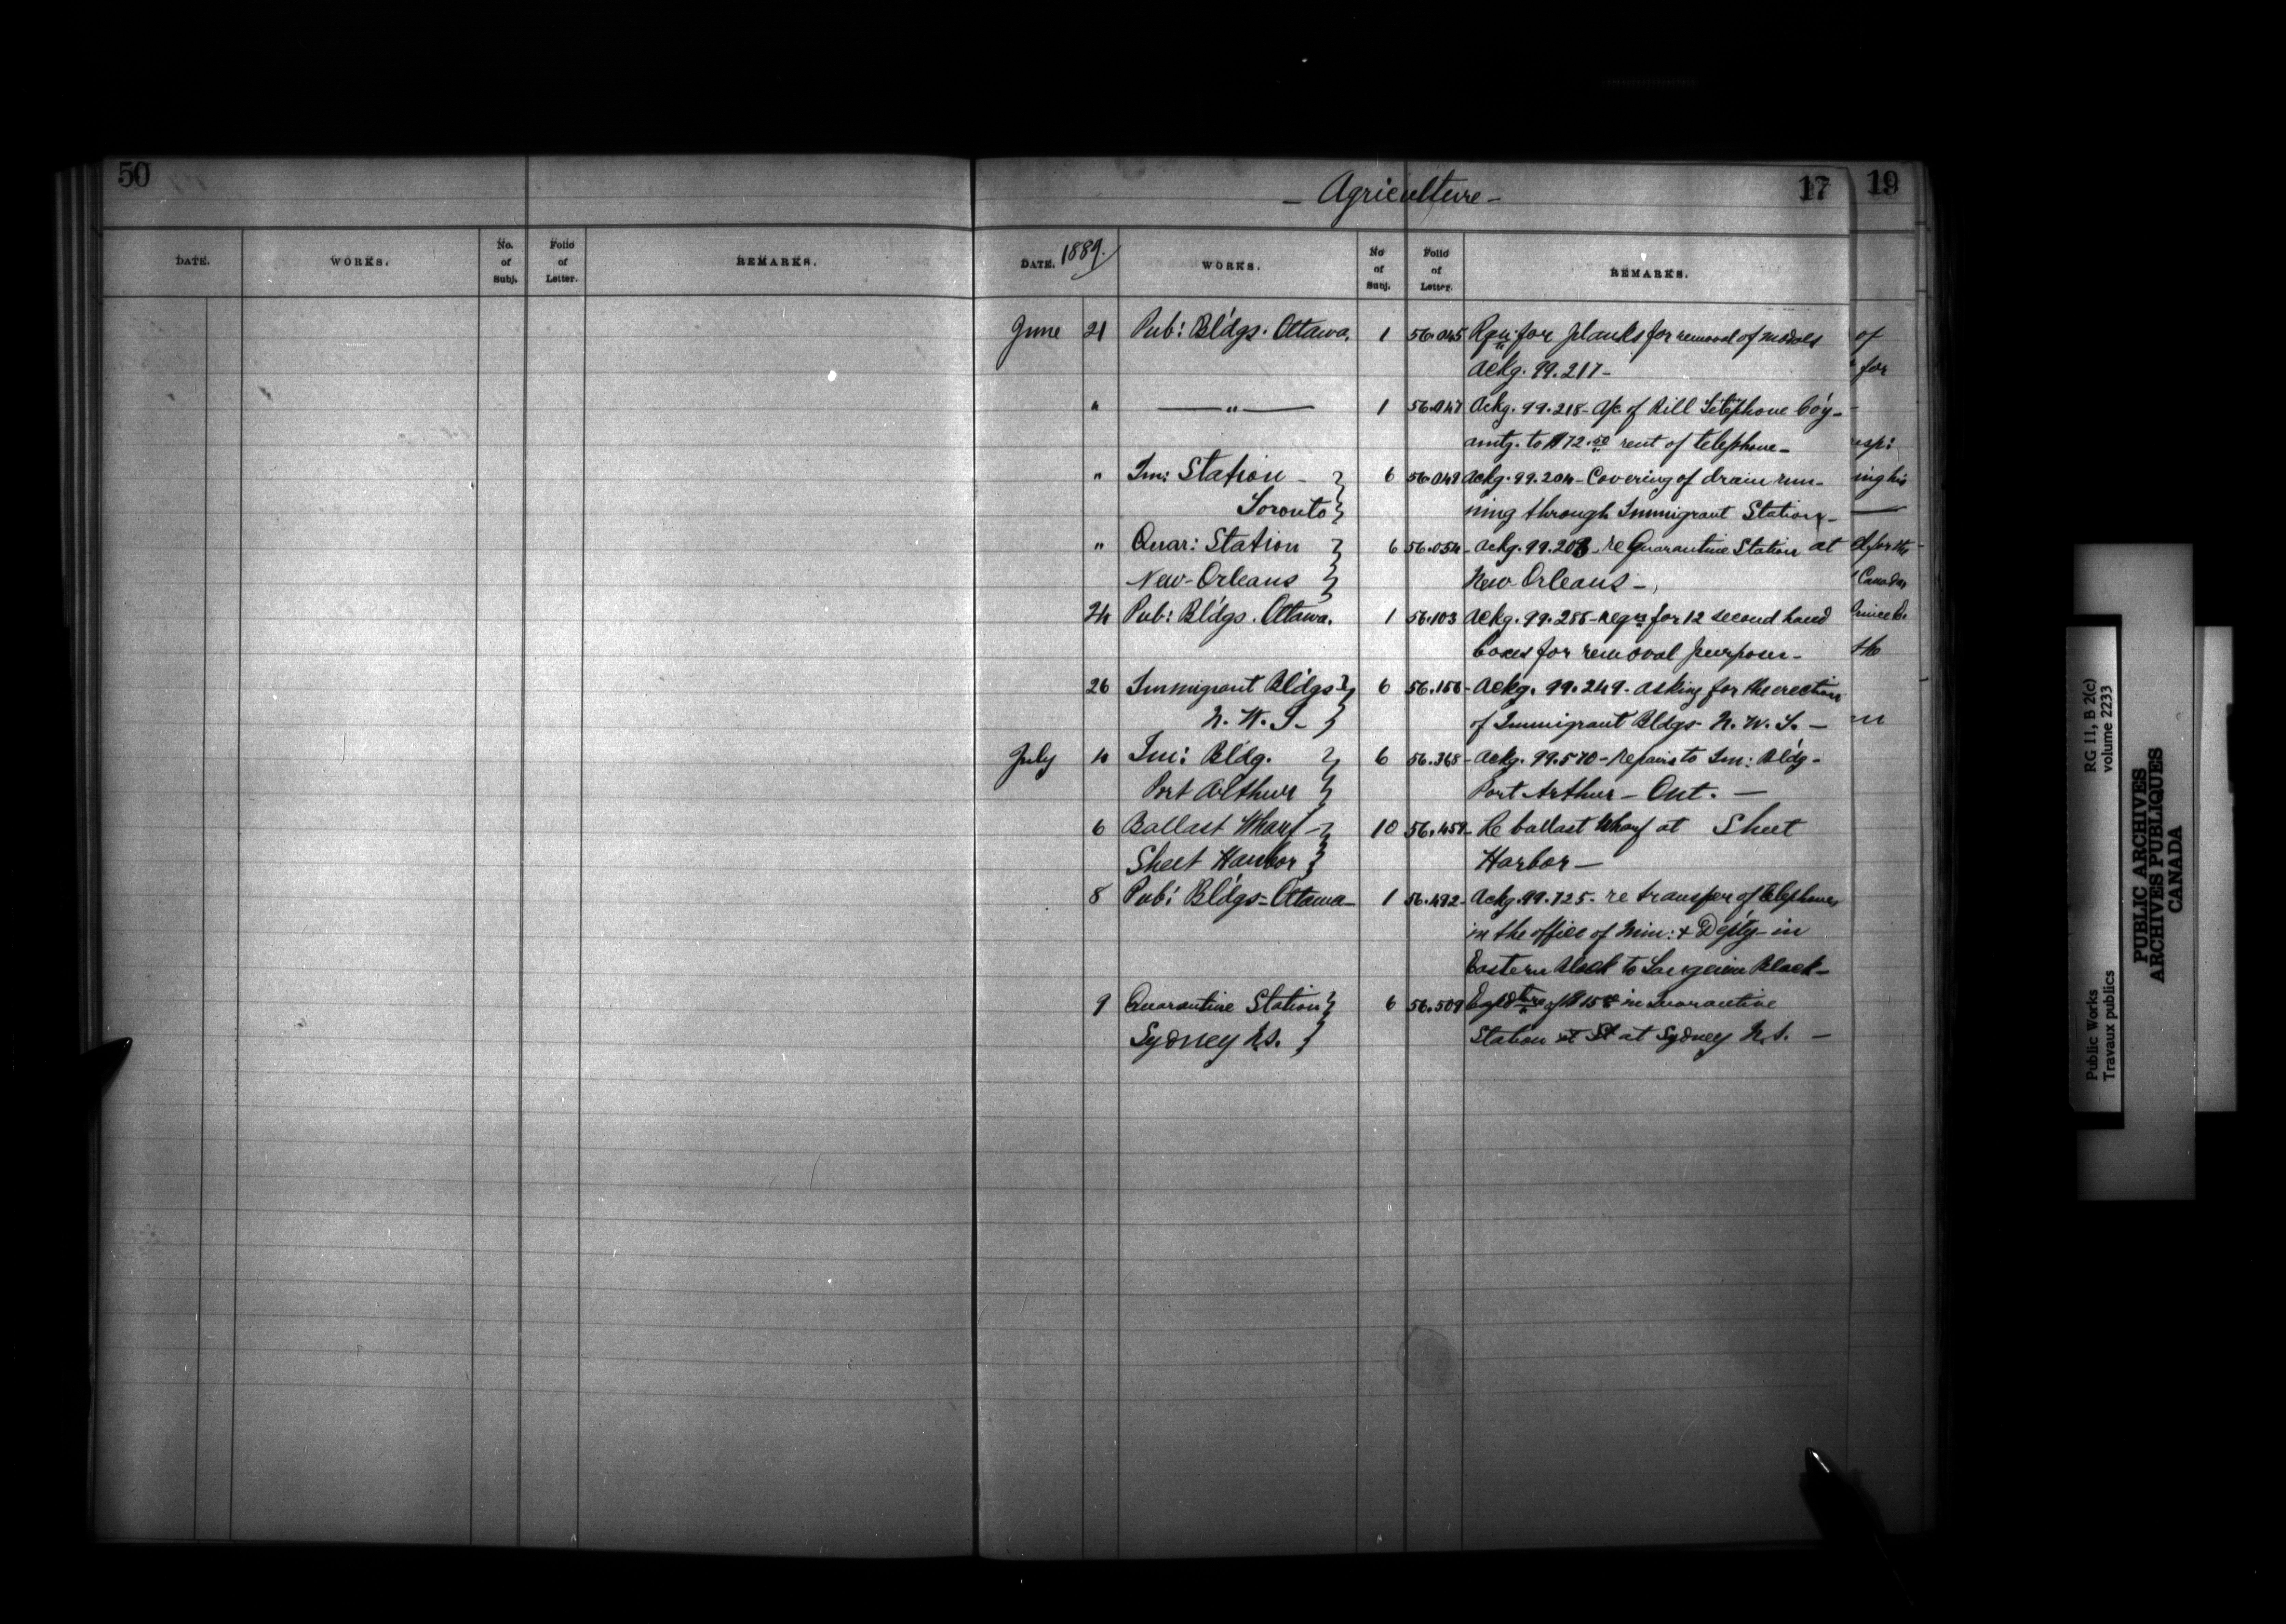 50
DATE. WORKS. No. of Subj. Folio of Letter. REMARKS.
- Agriculture - 17
19
DATE. 1889. WORKS. No of Subj. Folio of Letter. REMARKS.
June 21 Pub: Bldgs. Ottawa. 1 56.045 Rqn for planks for removal of models
Ackg. 99.217-
" —"— 1 56.047 Ackg. 99.218- a/c of Bill Telephone Co'y-
amtg. to $72.50 rent of telephone-
" Im: Station - } 6 56.049 Ackg. 99.204- Covering of drain run-
Toronto } ning through Immigrant Station-
" Quar: Station } 6 56.054- Ackg. 99.203- re Quarantine Station at
New-Orleans } New Orleans-
24 Pub: Bldgs. Ottawa. 1 56.103 Ackg. 99.255- for 12 second hand
boxes for removal purposes-
26 Immigrant Bldgs } 6 56.156- Ackg. 99.249- asking for the erection
N. W. T- } of Immigrant Bldgs- N. W. T. -
July 4 Im: Bldg. } 6 56.368- Ackg. 99.570- Repairs to Im: Bldg-
Port Arthur } Port Arthur - Ont. -
6 Ballast Wharf - } 10 56.459- Re ballast Wharf at Sheet
Sheet Harbor } Harbor-
8 Pub: Bldgs- Ottawa- 1 56.492- Ackg. 99.725- re transfer of telephones
in the office of Min: & Dep'ty- in
Eastern Block to Langevin Block-
9 Quarantine Station } 6 56.509 Expdtre of in Quarantine
Sydney N.S. } Station at St at Sydney N.S. -
of
for
ing his
the
Public Works RG 11, B 2(c)
Travaux publics volume 2233
PUBLIC ARCHIVES
ARCHIVES PUBLIQUES
CANADA